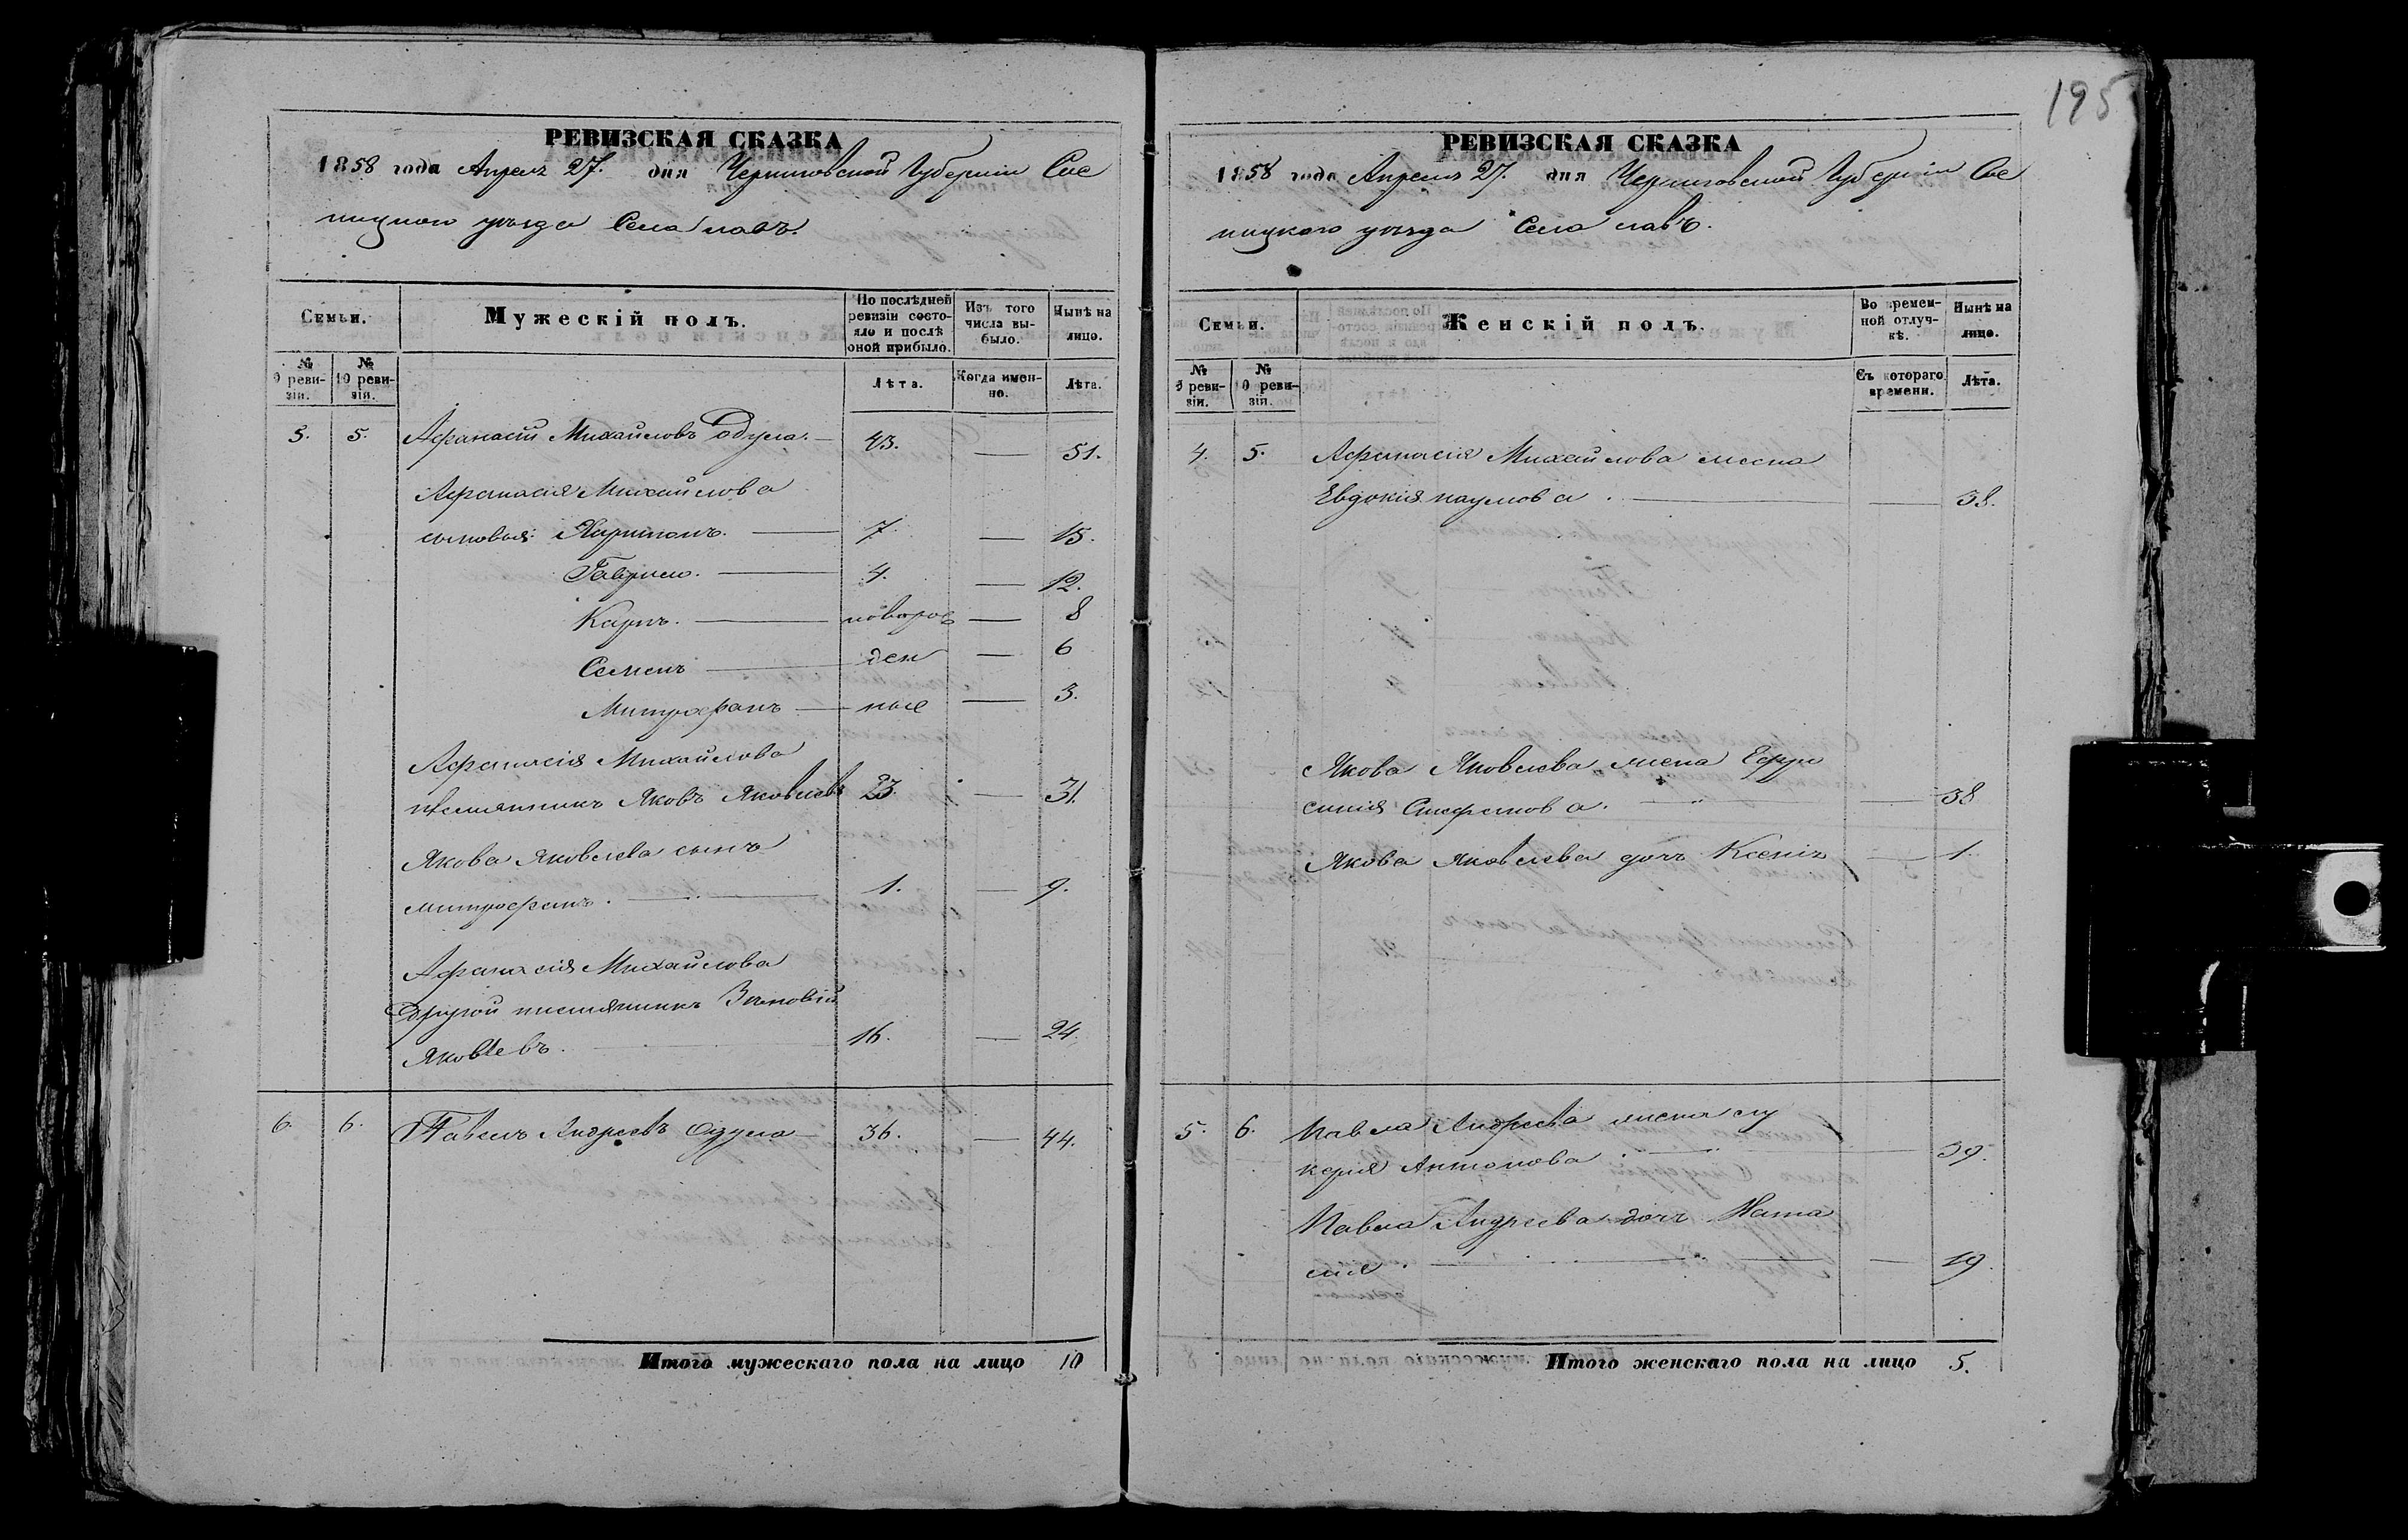 195
РЕВИЗСКАЯ СКАЗКА
1858 года Апреля 27. дня Черниговской Губернии Сос
ницкого уѣзда Села
Семьи.
Мужескій полъ.
По послѣдней ревизіи состо-
яло и послѣ
оной прибыло.
Изъ того
числа вы-
было.
Нынѣ на
лицо.
№
9 реви-
зіи.
№
10 реви-
зіи.
Лѣта.
Когда имен-
но.
Лѣта.
5. 5. Афанасій Михайловъ Одула. — 43. — 51.
Афанасія Михайлова
сыновья: Харитонъ. — 7. — 15.
Гаврило. — 4. — 12.
Карпъ. — новорож — 8
Семенъ — ден — 6
Митрофанъ — ные — 3.
Афанасія Михайлова
племянникъ Яковъ Яковлевъ 23. — 31.
Якова Яковлева сынъ
митрофанъ. — 1. — 9.
Афанасія Михайлова
другой племянникъ Зиновій
Яковлевъ. 16. — 24.
6. 6. Павелъ Андреевъ Одула — 36. — 44.
Итого мужескаго пола на лицо 10
РЕВИЗСКАЯ СКАЗКА
1858 года Апреля 27. дня Черниговской Губерніи Сос
ницкого уѣзда Села
Семьи.
Женскій полъ.
Во времен-
ной отлуч-
кѣ.
Нынѣ на
лицо.
№
9 реви-
зіи.
№
10 реви-
зіи.
Съ котораго
времени.
Лѣта.
4. 5. Афанасія Михайлова жена
Евдокія наумова. — 38.
Якова Яковлева жена Ефро
синія Стефанова. — 38
Якова Яковлева дочь Ксенія — 1.
5. 6. Павла Андреева жена глу
керія Антонова — 39.
Павла Андреева дочь Ната
лія. — 19.
Итого женскаго пола на лицо 5.